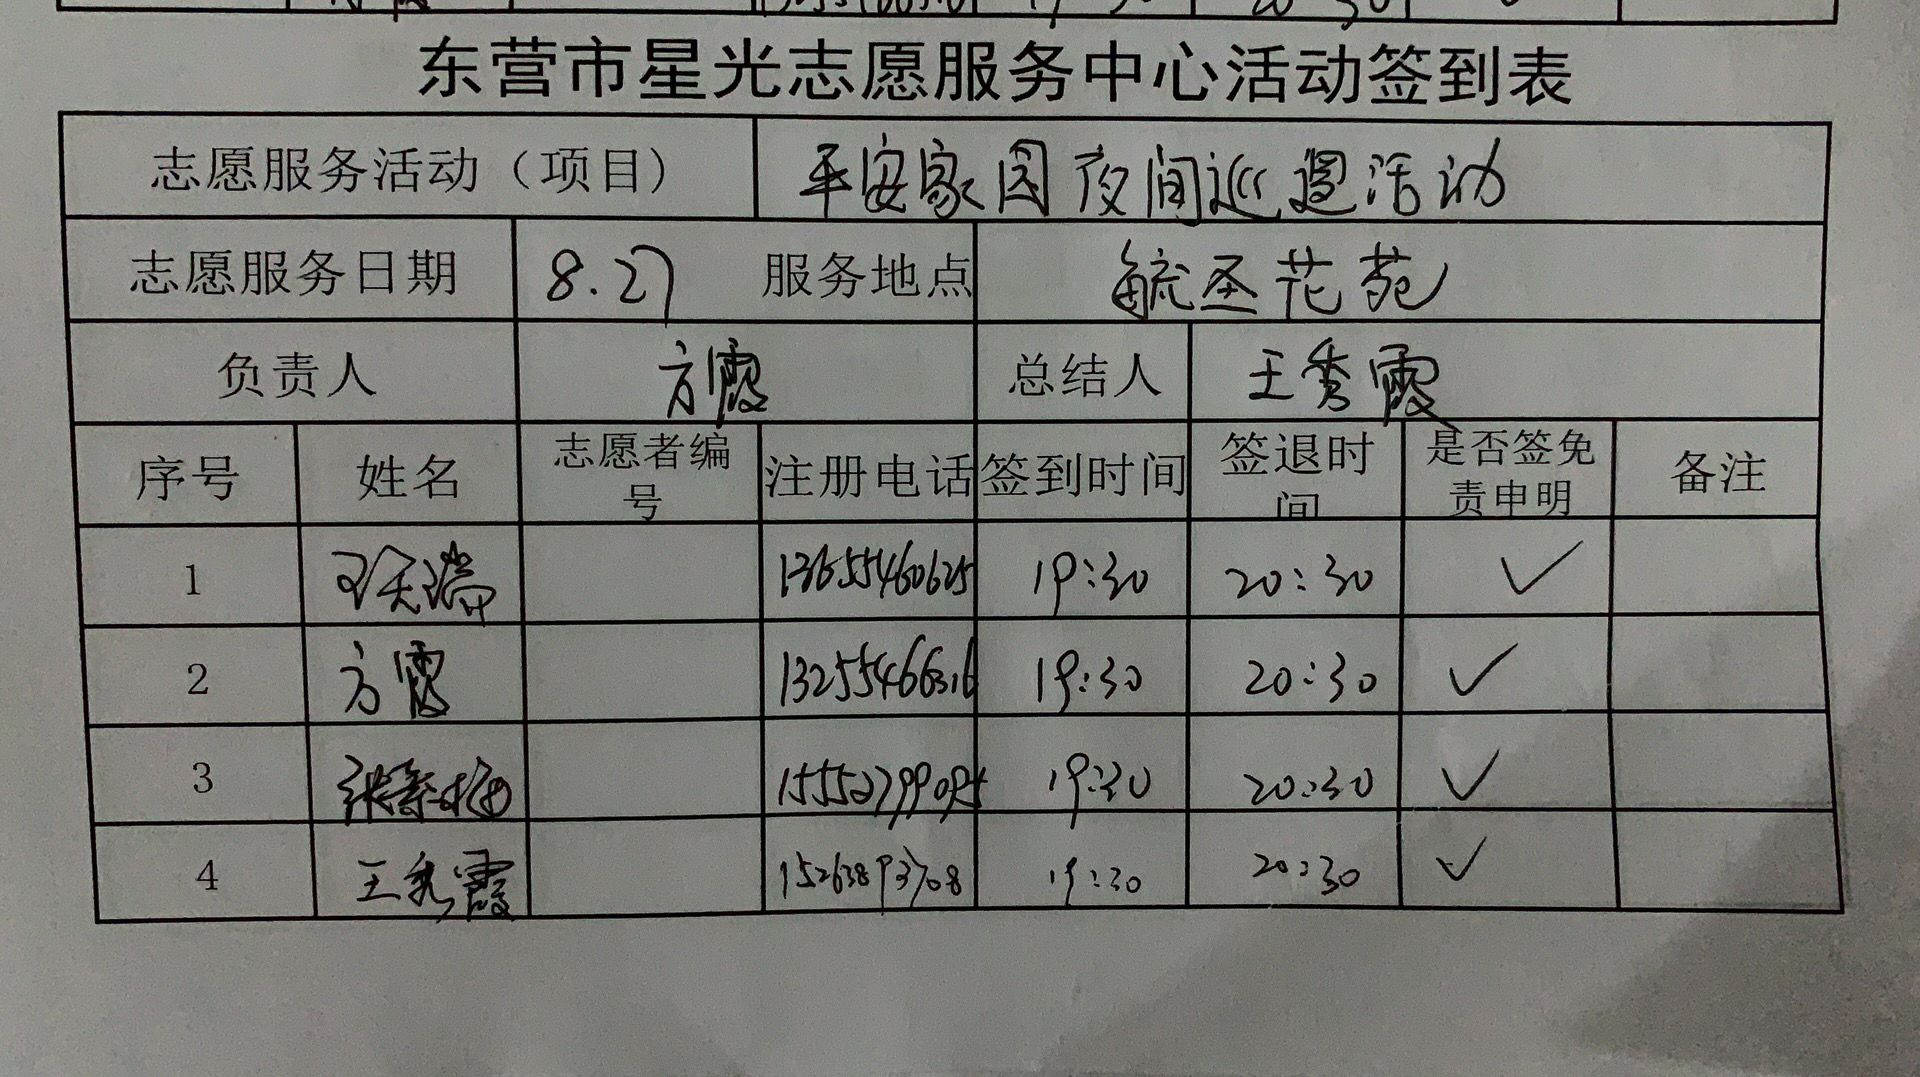 20:30
东营市星光志愿服务中心活动签到表
志愿服务活动（项目） 平安家园夜间巡逻活动
志愿服务日期 8.27 服务地点 毓圣花苑
负责人 方霞 总结人 王秀霞
序号 姓名 志愿者编号 注册电话 签到时间 签退时间 是否签免责申明 备注
1 瑞 13655460625 19:30 20:30 ✓
2 方霞 13255466316 19:30 20:30 ✓
3 张 19:30 20:30 ✓
4 王秀霞 15263893708 19:30 20:30 ✓